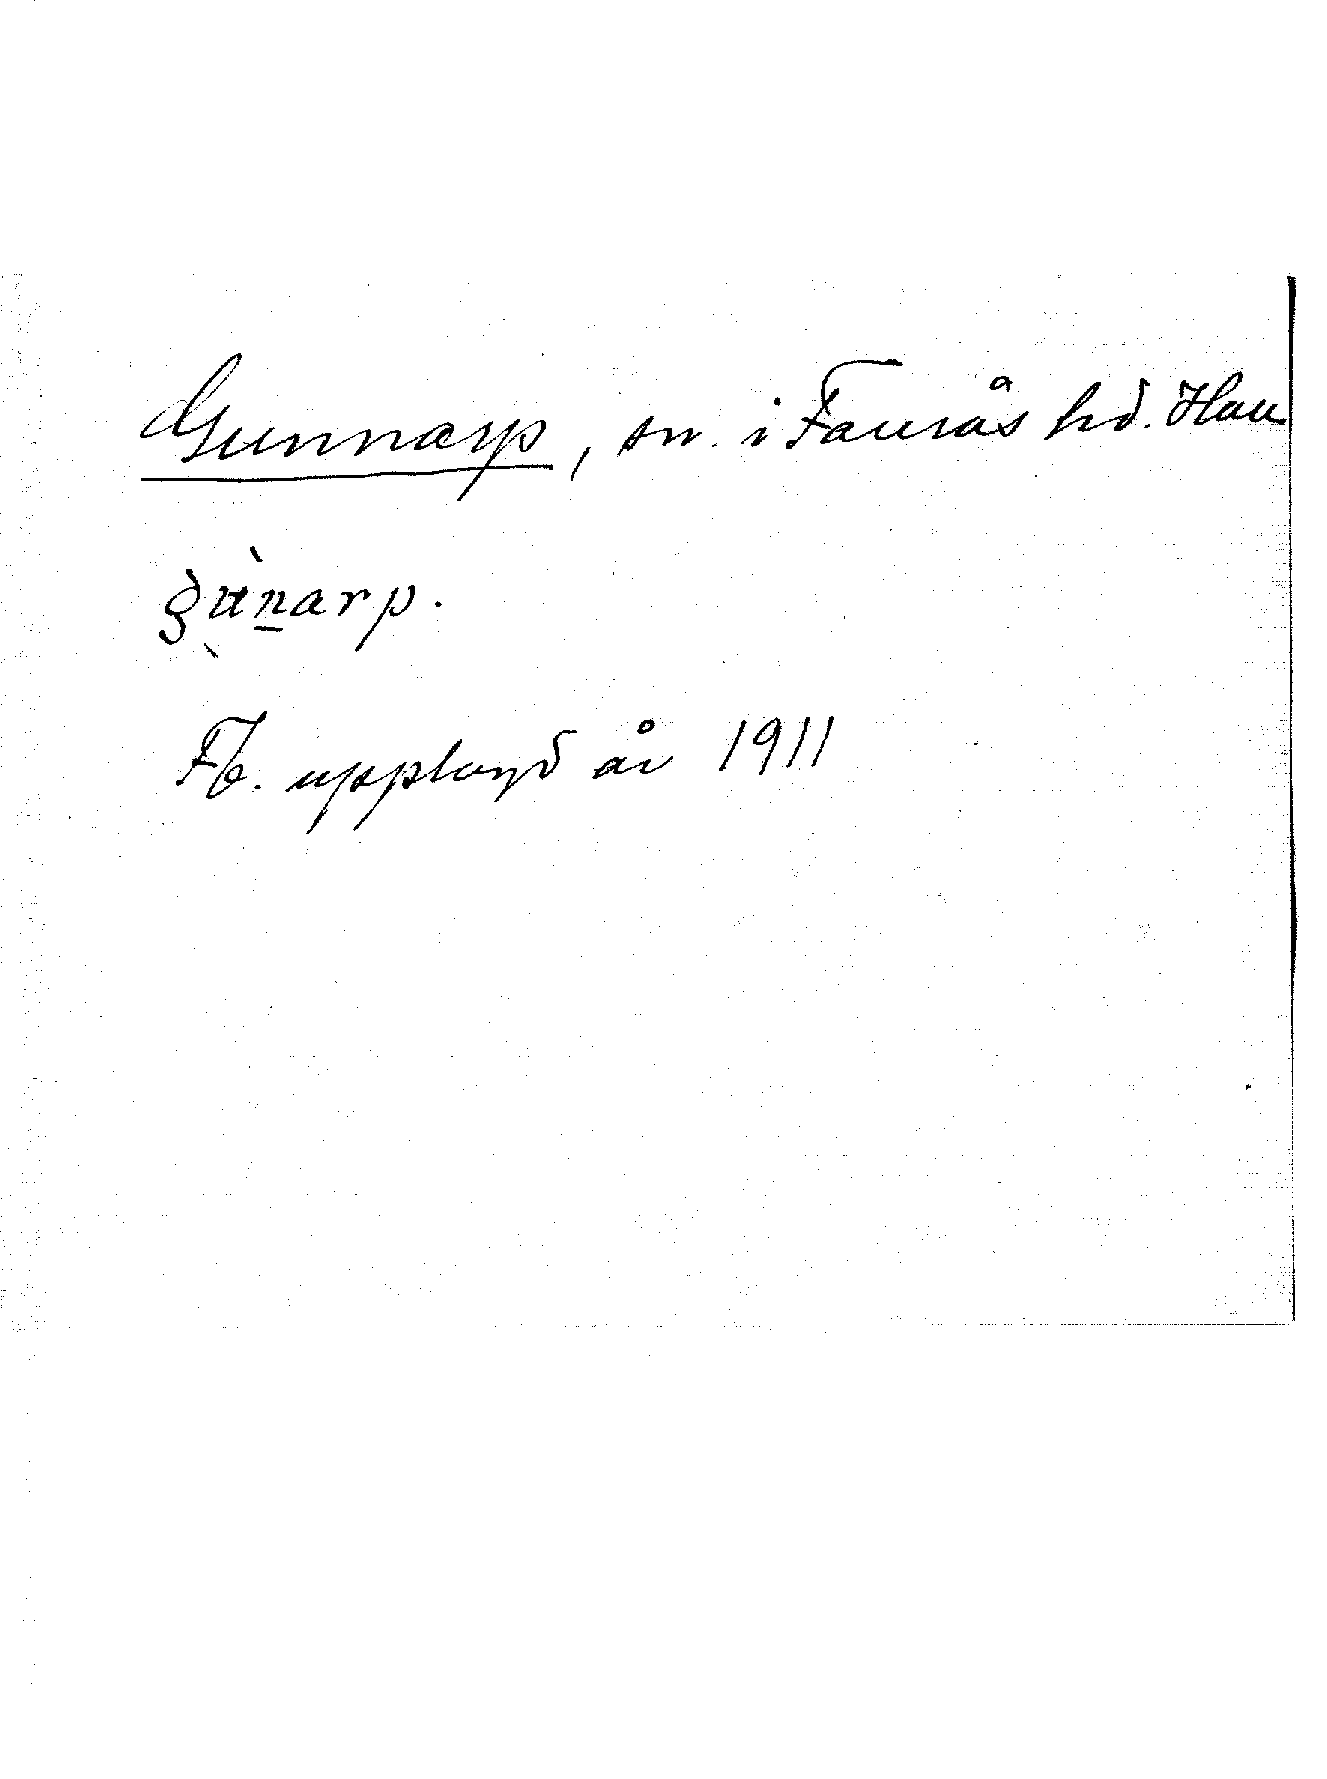 Gunnarp, sn. i Faurås hd. Hall
gùnarp.
Fb. upplagd år 1911